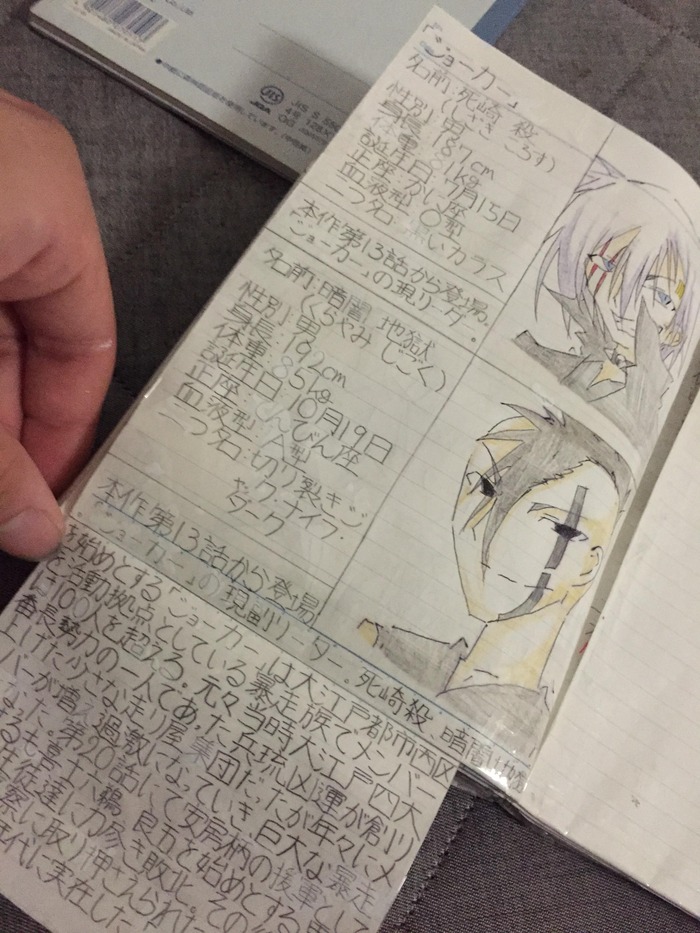 JIS
「ジョーカー」
名前:死崎 殺
(しざき ころす)
性別:男
身長:187cm
体重:
誕生日:7月15日
正座:かに座
血液型:O型
二つ名:黒いカラス
本作第13話から登場。
「ジョーカー」の現リーダー。
名前:暗闇 地獄
(くらやみ じごく)
性別:男
身長:192cm
体重:85kg
誕生日:10月19日
正座:てんびん座
血液型:A型
二つ名:切り裂きジ
ャック・ナイフ・
ダーク
本作第13話から登場。
「ジョーカー」の現副リーダー。死崎殺、暗闇地獄
を始めとする「ジョーカー」は大江戸都市内区
を活動拠点としている暴走族でメンバー
は100人を超える。元々当時大江戸四大
番長勢力の一人であった五琉凶運が創り
上げた小さな走り屋集団だったが年々にメ
ンバーが増え過激になっていき巨大な暴走
第20話にて安居柄の後輩として
良五を始めとする
生徒達に力及き敗北。その
に取り押さえられた
時代に実在した